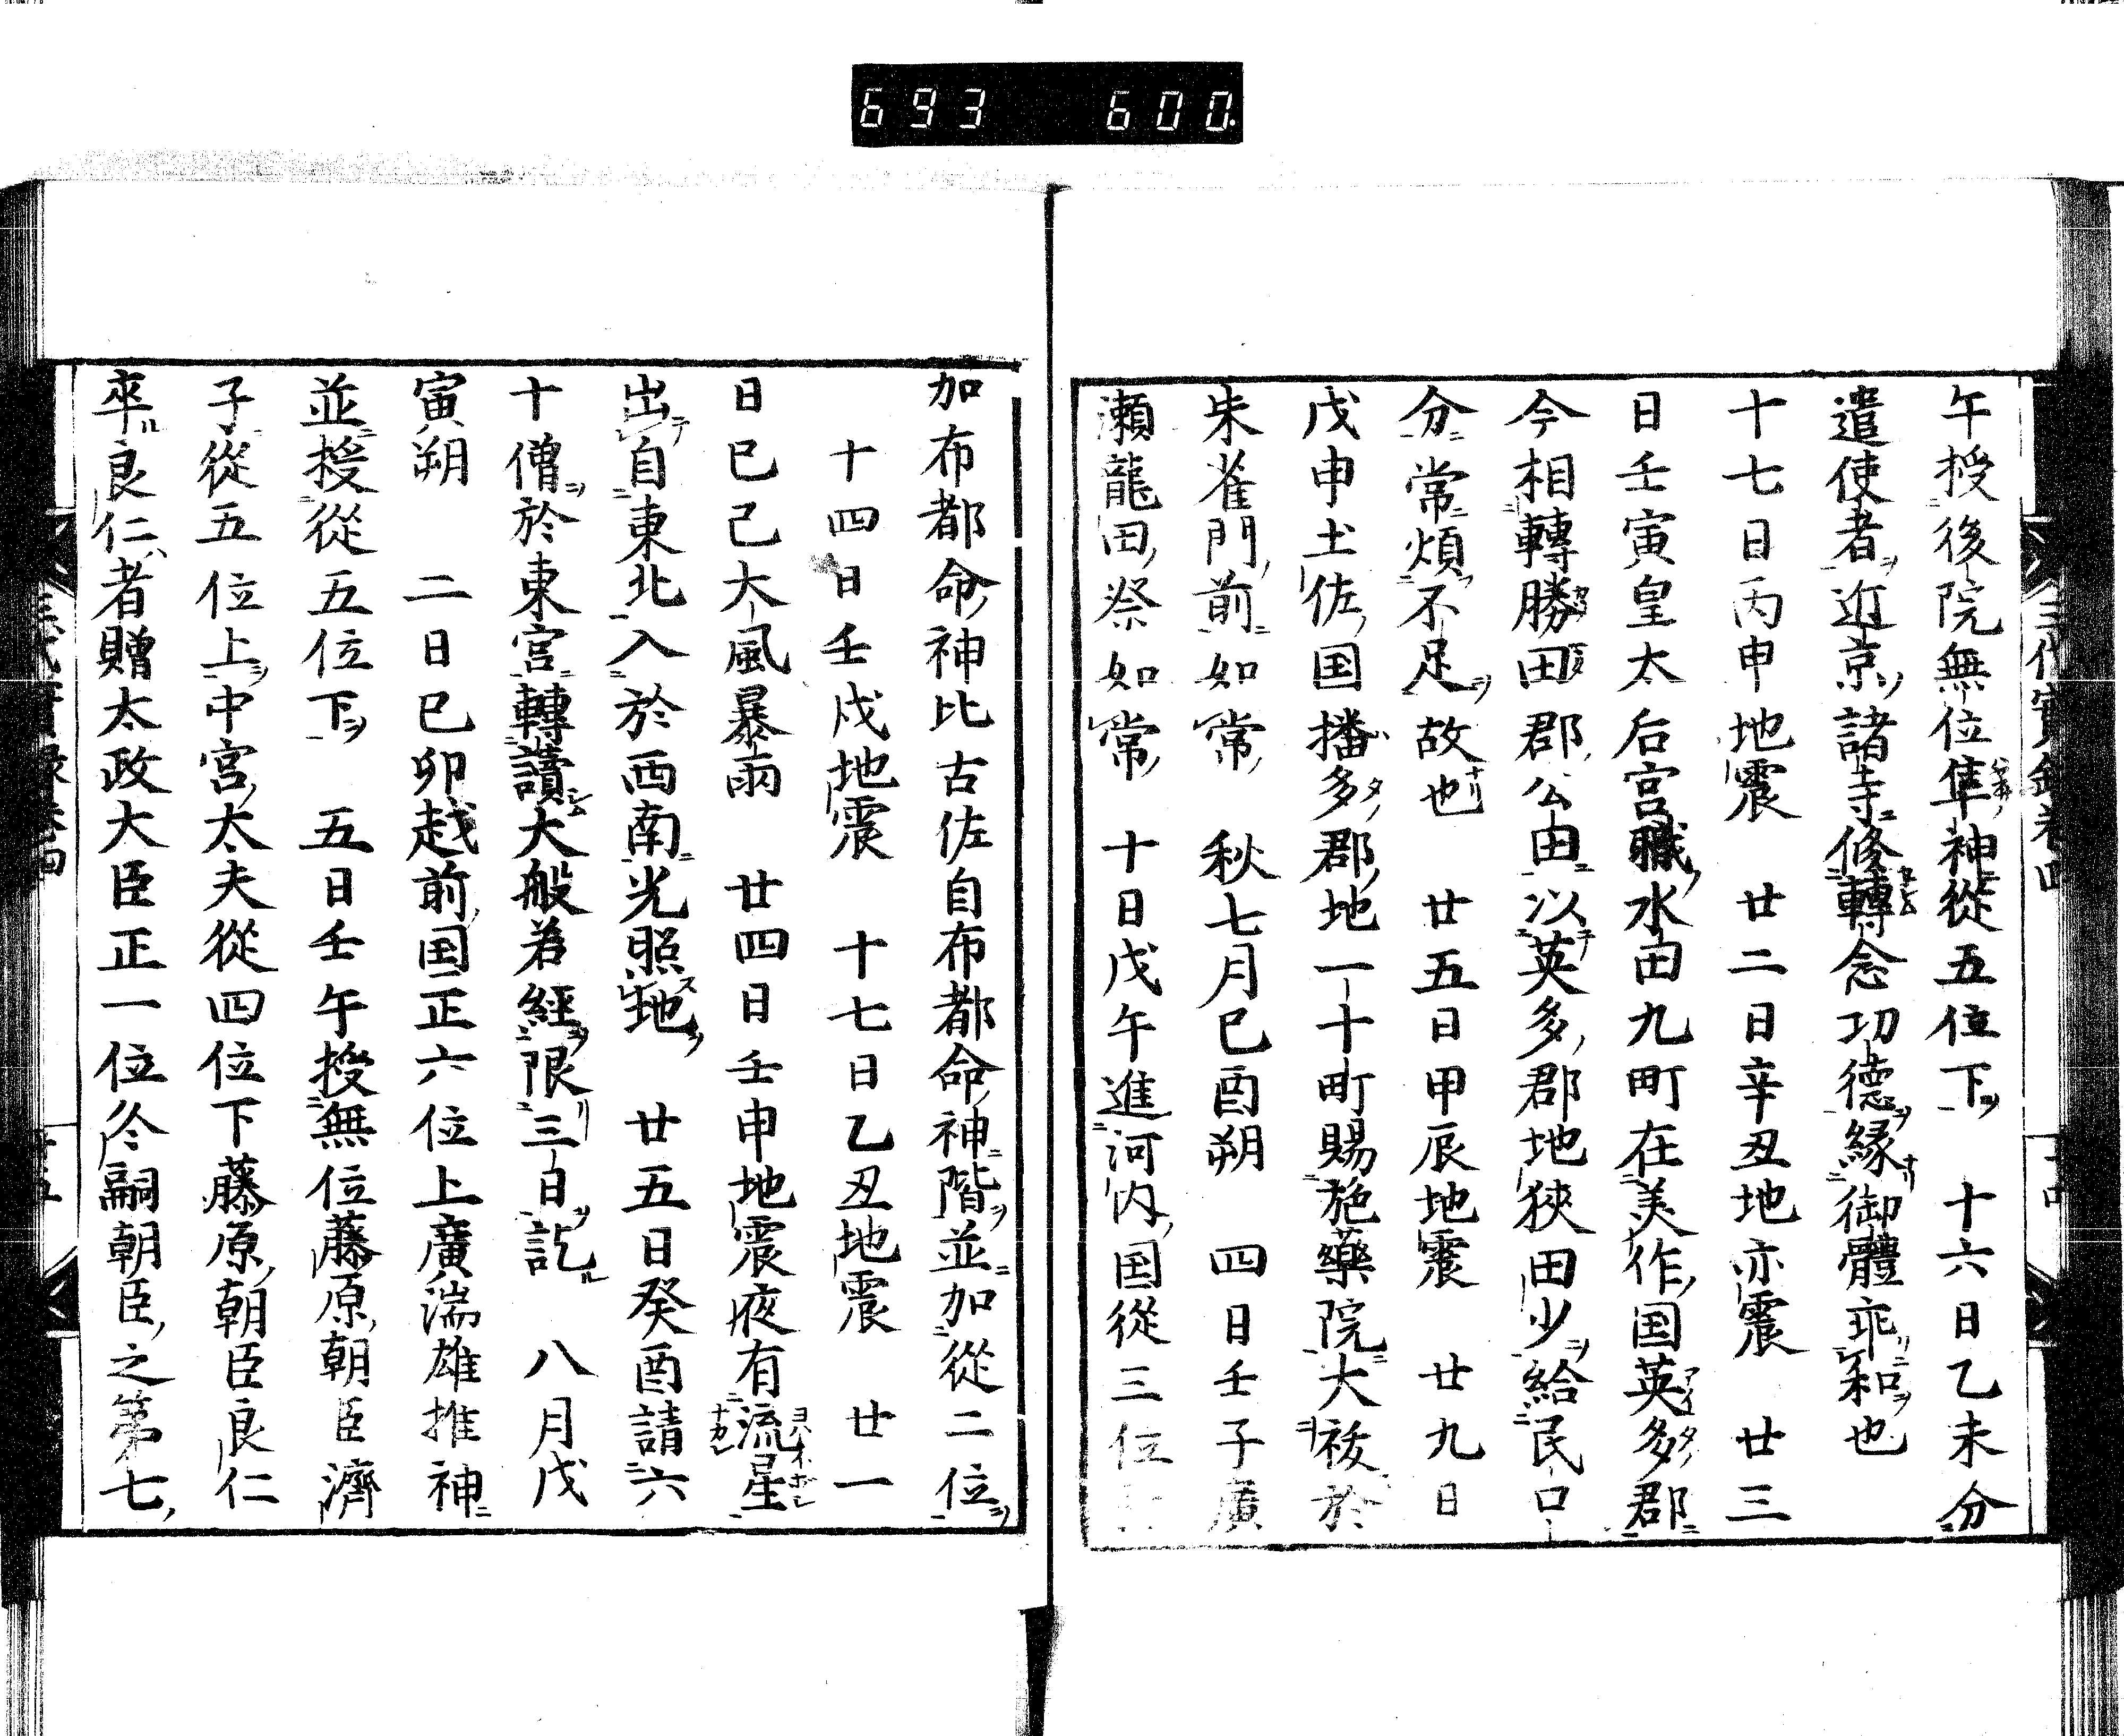 693 600.
午授後院無位隼神從五位下 十六日乙未分
遣使者近京諸寺修轉念功德緣御體乖和也
十七日丙申地震 廿二日辛丑地亦震 廿三
日壬寅皇太后宮職水田九町在美作国英多郡
今相轉勝田郡公田以英多郡地狹田少給民口
分常煩不足故也 廿五日甲辰地震 廿九日
戊申土佐国播多郡地一十町賜施藥院大祓於
朱雀門前如常 秋七月己酉朔 四日壬子廣
瀬龍田祭如常 十日戊午進河内国從三位
加布都命神比古佐自布都命神階並加從二位
十四日壬戌地震 十七日乙丑地震 廿一
日己巳大風暴雨 廿四日壬申地震夜有流星
出自東北入於西南光照地 廿五日癸酉請六
十僧於東宮轉讀大般若經限三日訖 八月戊
寅朔 二日己卯越前国正六位上廣湍雄推神
並授從五位下 五日壬午授無位藤原朝臣濟
子從五位上中宮太夫從四位下藤原朝臣良仁
卒良仁者贈太政大臣正一位冬嗣朝臣之第七